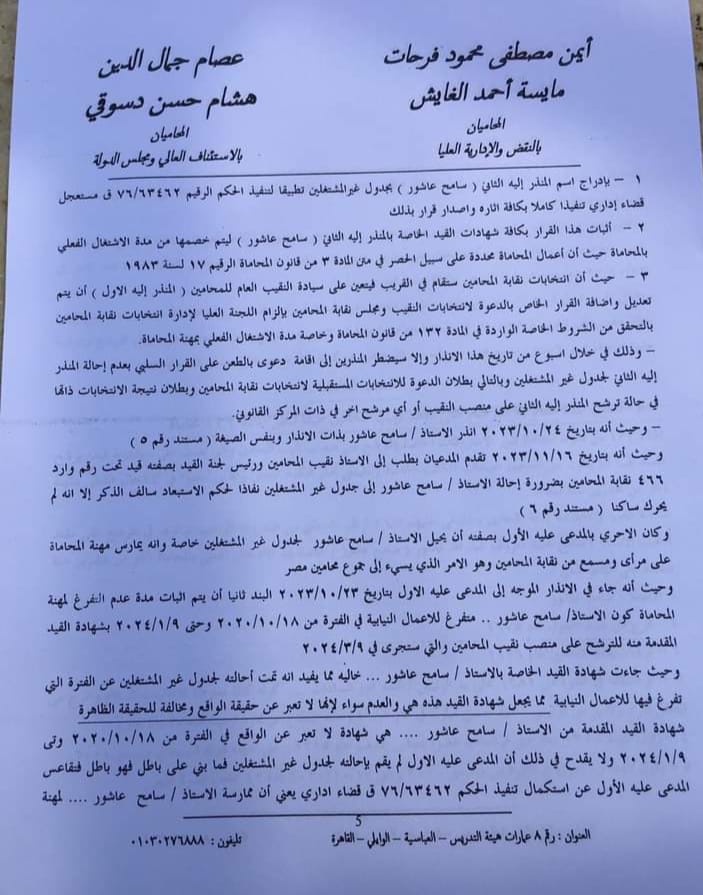 أيمن مصطفى محمود فرحات
مايسة أحمد الغايش
المحاميان
بالنقض والإدارية العليا
عصام جمال الدين
هشام حسن دسوقي
المحاميان
بالاستئناف العالي ومجلس الدولة
١ – بإدراج اسم المنذر إليه الثاني ( سامح عاشور ) بجدول غير المشتغلين تطبيقا لتنفيذ الحكم الرقيم ٧٦/٦٣٤٦٢ ق مستعجل
قضاء إداري تنفيذا كاملا بكافة اثاره واصدار قرار بذلك
٢ – أثبات هذا القرار بكافة شهادات القيد الخاصة بالمنذر إليه الثاني ( سامح عاشور ) ليتم خصمها من مدة الاشتغال الفعلي
بالمحاماة حيث أن أعمال المحاماة محددة على سبيل الحصر في متن المادة ٣ من قانون المحاماة الرقيم ١٧ لسنة ١٩٨٣
٣ – حيث أن انتخابات نقابة المحامين ستقام في القريب فيتعين على سيادة النقيب العام للمحامين ( المنذر إليه الاول ) أن يتم
تعديل واضافة القرار الخاص بالدعوة لانتخابات النقيب ومجلس نقابة المحامين بإلزام اللجنة العليا لإدارة انتخابات نقابة المحامين
بالتحقق من الشروط الخاصة الواردة في المادة ١٣٢ من قانون المحاماة وخاصة مدة الاشتغال الفعلي بمهنة المحاماة.
– وذلك في خلال اسبوع من تاريخ هذا الانذار وإلا سيضطر المنذرين إلى اقامة دعوى بالطعن على القرار السلبي بعدم إحالة المنذر
إليه الثاني لجدول غير المشتغلين وبالتالي بطلان الدعوة للانتخابات المستقبلية لانتخابات نقابة المحامين وبطلان نتيجة الانتخابات ذاتها
في حالة ترشح المنذر إليه الثاني على منصب النقيب أو أي مرشح اخر في ذات المركز القانوني.
– وحيث أنه بتاريخ ٢٠٢٣/١٠/٢٤ انذر الاستاذ / سامح عاشور بذات الانذار وبنفس الصيغة ( مستند رقم ٥ )
وحيث أنه بتاريخ ٢٠٢٣/١١/١٦ تقدم المدعيان بطلب إلى الاستاذ نقيب المحامين ورئيس لجنة القيد بصفته قيد تحت رقم وارد
٤٦٦ نقابة المحامين بضرورة إحالة الاستاذ / سامح عاشور إلى جدول غير المشتغلين نفاذا لحكم الاستبعاد سالف الذكر إلا انه لم
يحرك ساكنا ( مستند رقم ٦ )
وكان الاحري بالمدعى عليه الأول بصفته أن يحيل الاستاذ / سامح عاشور لجدول غير المشتغلين خاصة وانه يمارس مهنة المحاماة
على مرأى ومسمع من نقابة المحامين وهو الامر الذي يسيء إلى جموع محامين مصر
وحيث أنه جاء في الانذار الموجه إلى المدعى عليه الاول بتاريخ ٢٠٢٣/١٠/٢٣ البند ثانيا أن يتم اثبات مدة عدم التفرغ لمهنة
المحاماة كون الاستاذ/ سامح عاشور .. متفرغ للاعمال النيابية في الفترة من ٢٠٢٠/١٠/١٨ وحتى ٢٠٢٤/١/٩ بشهادة القيد
المقدمة منه للترشح على منصب نقيب المحامين والتي ستجرى في ٢٠٢٤/٣/٩
وحيث جاءت شهادة القيد الخاصة بالاستاذ / سامح عاشور ... خاليه مما يفيد انه تمت أحالته لجدول غير المشتغلين عن الفترة التي
تفرغ فيها للاعمال النيابية مما يجعل شهادة القيد هذه هي والعدم سواء لانها لا تعبر عن حقيقة الواقع ومخالفة للحقيقة الظاهرة
شهادة القيد المقدمة من الاستاذ / سامح عاشور .... هي شهادة لا تعبر عن الواقع في الفترة من ٢٠٢٠/١٠/١٨ وتى
٢٠٢٤/١/٩ ولا يقدح في ذلك أن المدعى عليه الاول لم يقم بإحالته لجدول غير المشتغلين فما بني على باطل فهو باطل فتقاعس
المدعى عليه الأول عن استكمال تنفيذ الحكم ٧٦/٦٣٤٦٢ ق قضاء اداري يعني أن ممارسة الاستاذ / سامح عاشور .... لمهنة
5
العنوان : رقم ٨ عمارات هيئة التدريس – العباسية – الوايلي – القاهرة
تليفون : ٠١٠٣٠٢٧٦٨٨٨